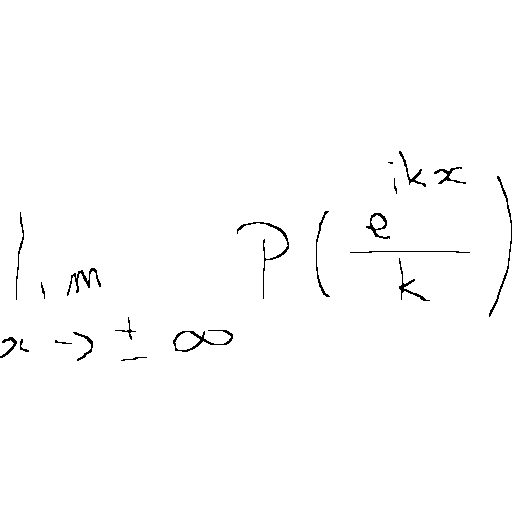 \lim_{x \to \pm \infty} P\left(\frac{e^{ikx}}{k}\right)